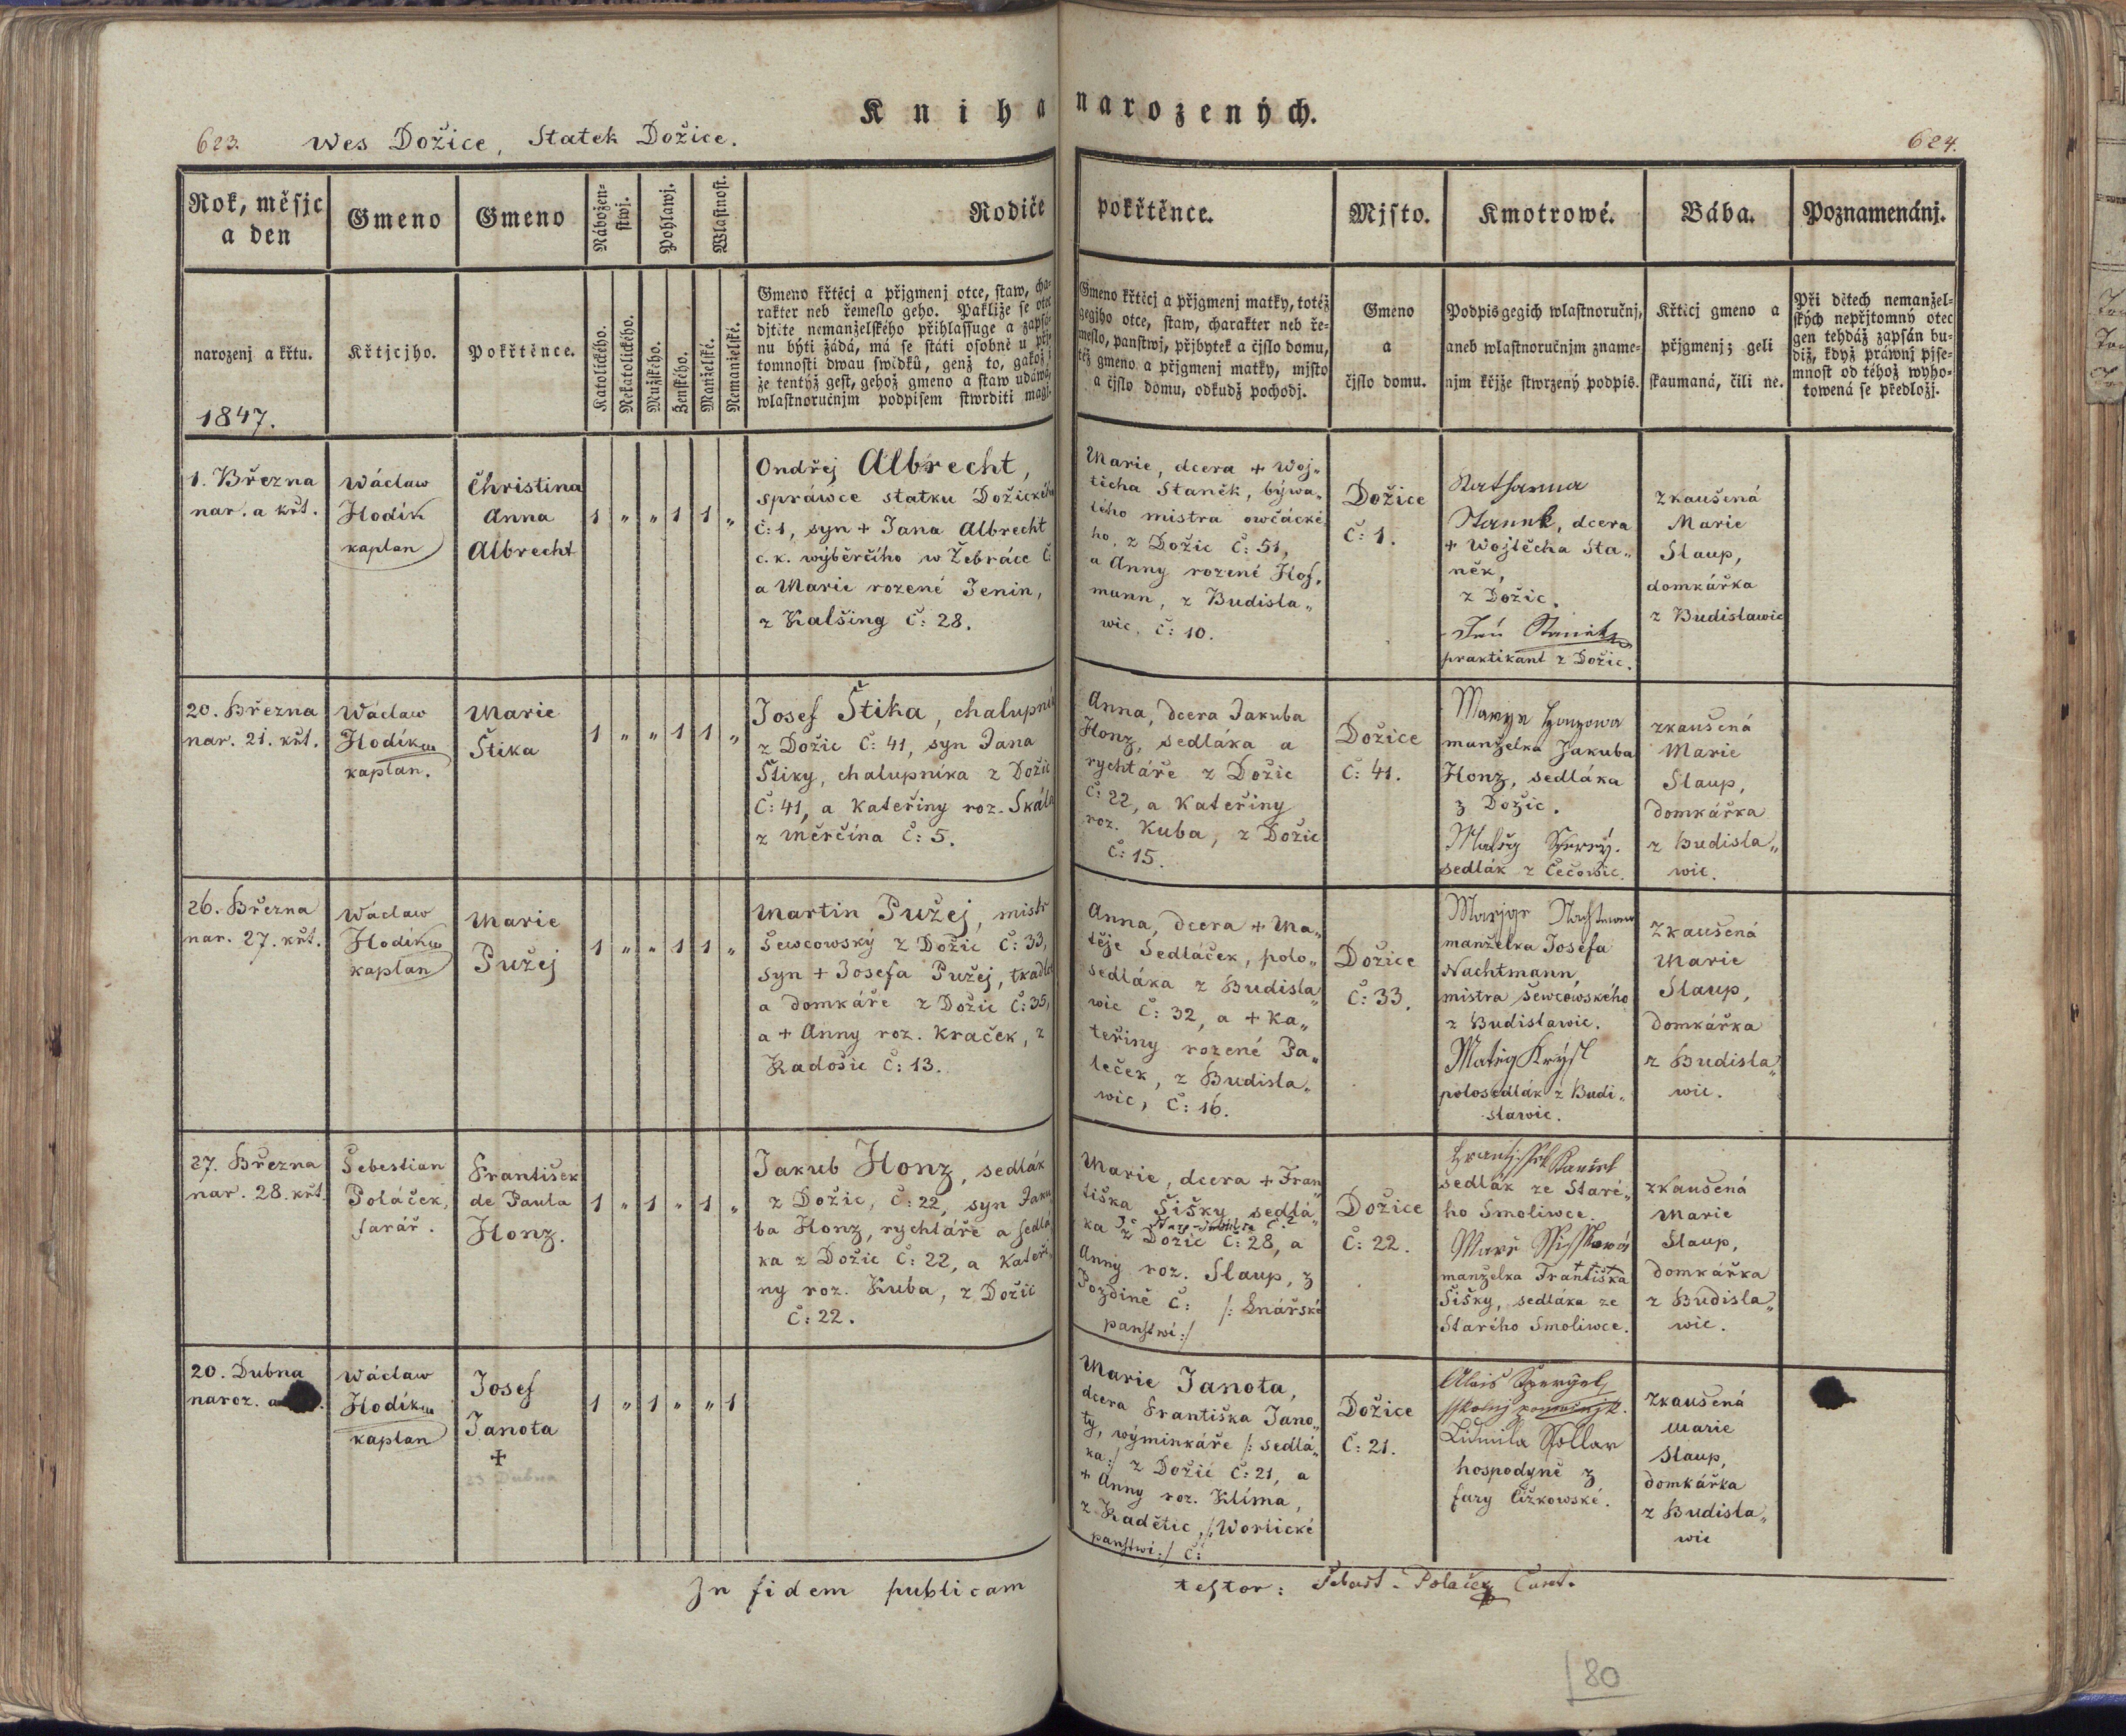 Kniha narozených.
623. Wes Dožice, Statek Dožice.
624.
Rok, měsjc
a den
narozenj a křtu.
1847.
Gmeno
Křtjcjho.
Gmeno
Pokřtěnce.
Nábožen-
stwj.
Pohlawj.
Wlastnost.
Katolického.
Nekatolického.
Mužského.
Ženského.
Manželské.
Nemanželské.
Rodiče pokřtěnce.
Gmeno křtěcj a přjgmenj otce, staw, cha-
rakter neb řemeslo geho. Pakliže se otec
djtěte nemanželského přihlassuge a zapsá-
nu býti žádá, má se státi osobně u přj-
tomnosti dwau swidků, genž to, gakož i
že tentýž gest, gehož gmeno a staw udáwá,
wlastnoručnjm podpisem stwrditi magj.
Gmeno křtěcj a přjgmenj matky, totéž
gegjho otce, staw, charakter neb ře-
meslo, panstwj, přjbytek a čjslo domu,
též gmeno a přjgmenj matky, mjsto
a čjslo domu, odkudž pochodj.
Mjsto.
Gmeno
a
čjslo domu.
Kmotrowé.
Podpis gegich wlastnoručnj,
aneb wlastnoručnjm zname-
njm křjže stwrzený podpis.
Bába.
Křtěcj gmeno a
přjgmenj; geli
skaumaná, čili ne.
Poznamenánj.
Při dětech nemanžel-
ských nepřjtomný otec
gen tehdáž zapsán bu-
diž, když práwnj pjse-
mnost od téhož wyho-
towená se předložj.
1. Března
nar. a křt.
Wáclaw
Hodík
kaplan
Christina
Anna
Albrecht
1 " " 1 1 "
Ondřej Albrecht,
spráwce statku Dožického
č: 1, syn + Jana Albrecht
c. k. wýběrčího w Žebráce č:
a Marie rozené Jenin,
z Kalšing č: 28.
Marie, dcera + Woj„
těcha Staněk, býwa„
lého mistra owčácké
ho, z Dožic č: 51,
a Anny rozené Hof„
mann, z Budisla„
wic, č: 10.
Dožice
č: 1.
Katharina
Stannk, dcera
+ Wojtěcha Sta„
něk,
z Dožic.
Jan Staněk
praktikant z Dožic.
zkaušená
Marie
Slaup,
domkářka
z Budislawic
20. Března
nar. 21. křt.
Wáclaw
Hodík
kaplan.
Marie
Štika
1 " " 1 1 "
Josef Štika, chalupník
z Dožic č: 41, syn Jana
Štiky, chalupníka z Dožic
č: 41, a Kateřiny roz. Skála
z Měrčína č: 5.
Anna, dcera Jakuba
Honz, sedláka a
rychtáře z Dožic
č: 22, a Kateřiny
roz. Kuba, z Dožic
č: 15.
Dožice
č: 41.
Marye Honzowa
manželka Jakuba
Honz, sedláka
z Dožic.
Matěg
sedlák z Čečowic.
zkaušená
Marie
Slaup,
domkářka
z Budisla„
wic.
26. Března
nar. 27. křt.
Wáclaw
Hodík
kaplan
Marie
Pužej
1 " " 1 1 "
Martin Pužej, mistr
šewcowský z Dožic č: 33,
syn + Josefa Pužej, tkadlce
a domkáře z Dožic č: 35,
a + Anny roz. Kraček, z
Radošic č: 13.
Anna, dcera + Ma„
těje Sedláček, polo„
sedláka z Budisla„
wic č: 32, a + Ka„
teřiny rozené Pa„
leček, z Budisla„
wic, č: 16.
Dožice
č: 33.
manželka Josefa
Nachtmann
mistra šewcowského
z Budislawic.
Matěg Krýsl
polosedlák z Budi„
slawic.
zkaušená
Marie
Slaup,
domkářka
z Budisla„
wic.
27. Března
nar. 28. křt.
Šebestian
Poláček,
farář.
František
de Paula
Honz.
1 " 1 " 1 "
Jakub Honz, sedlák
z Dožic, č: 22, syn Jaku
ba Honz, rychtáře a sedlá
ka z Dožic č: 22, a Kateři
ny roz. Kuba, z Dožic
č: 22.
Marie, dcera + Fran„
tiška Šišky, sedlá„
ka z Dožic č: 28, a
Anny roz. Slaup, z
Pozdině č: /: Lnářské
panstwí :/
Dožice
č: 22.
Frantjssek Kaniel
sedlák ze Staré„
ho Smoliwce.
Marě Ssisskowá
+ + +
manželka Františka
Šišky, sedláka ze
Starého Smoliwce.
zkaušená
Marie
Slaup,
domkářka
z Budisla„
wic.
20. Dubna
naroz. a
Wáclaw
Hodík
kaplan
Josef
Janota
+
23 Dubna
1 " 1 " " 1
Marie Janota,
dcera Františka Jano„
ty, wýminkáře /: sedlá„
ka :/ z Dožic č: 21, a
+ Anny roz. Klíma,
z Radětic, /: Worlické
panstwí :/ č:
Dožice
č: 21.
Alois
Lidmila Kollar
hospodyně z
fary Čižkowské.
zkaušená
Marie
Slaup,
domkářka
z Budisla„
wic
In fidem publicam testor: Sebast. Poláček Curat.
80